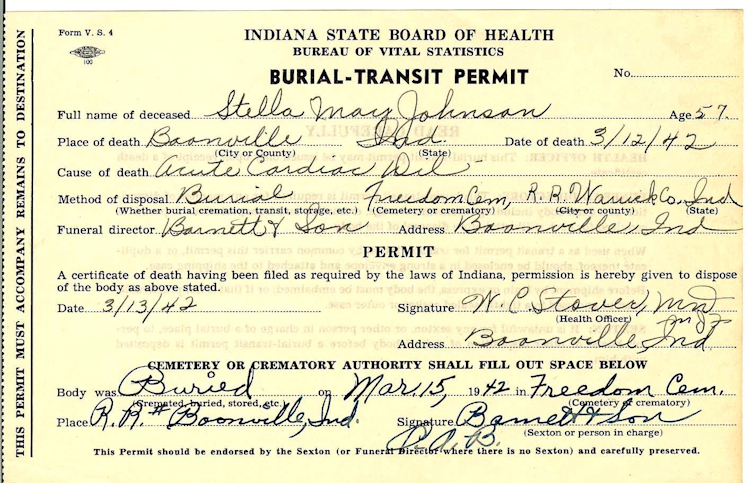 Form V. S. 4
INDIANA STATE BOARD OF HEALTH
BUREAU OF VITAL STATISTICS
BURIAL-TRANSIT PERMIT
No.
Full name of deceased Stella May Johnson Age 57.
Place of death Boonville Ind. Date of death 3/12/42
(City or County) (State)
Cause of death Acute Cardiac Dil
Method of disposal Burial Freedom Cem, R.R. Warrick Co, Ind
(Whether burial cremation, transit, storage, etc.) (Cemetery or crematory) (City or county) (State)
Funeral director Barnett & Son Address Boonville, Ind
PERMIT
A certificate of death having been filed as required by the laws of Indiana, permission is hereby given to dispose
of the body as above stated.
Date 3/13/42 Signature W. C. Stover, MD
(Health Officer)
Address Boonville, Ind
CEMETERY OR CREMATORY AUTHORITY SHALL FILL OUT SPACE BELOW
Body was Buried on Mar. 15, 1942 in Freedom Cem.
(Cremated, buried, stored, etc.) (Cemetery or crematory)
Place R.R.# Boonville, Ind. Signature Barnett & Son
(Sexton or person in charge)
This Permit should be endorsed by the Sexton (or Funeral Director where there is no Sexton) and carefully preserved.
THIS PERMIT MUST ACCOMPANY REMAINS TO DESTINATION